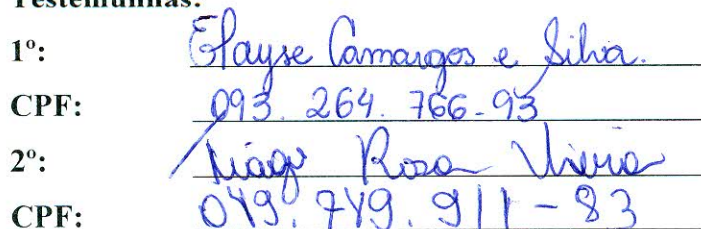 Testemunhas:
1º: Elayse Camargos e Silva.
CPF: 093.264.766-93
2º: Tiago Rosa Vieira
CPF: 049.749.911-83